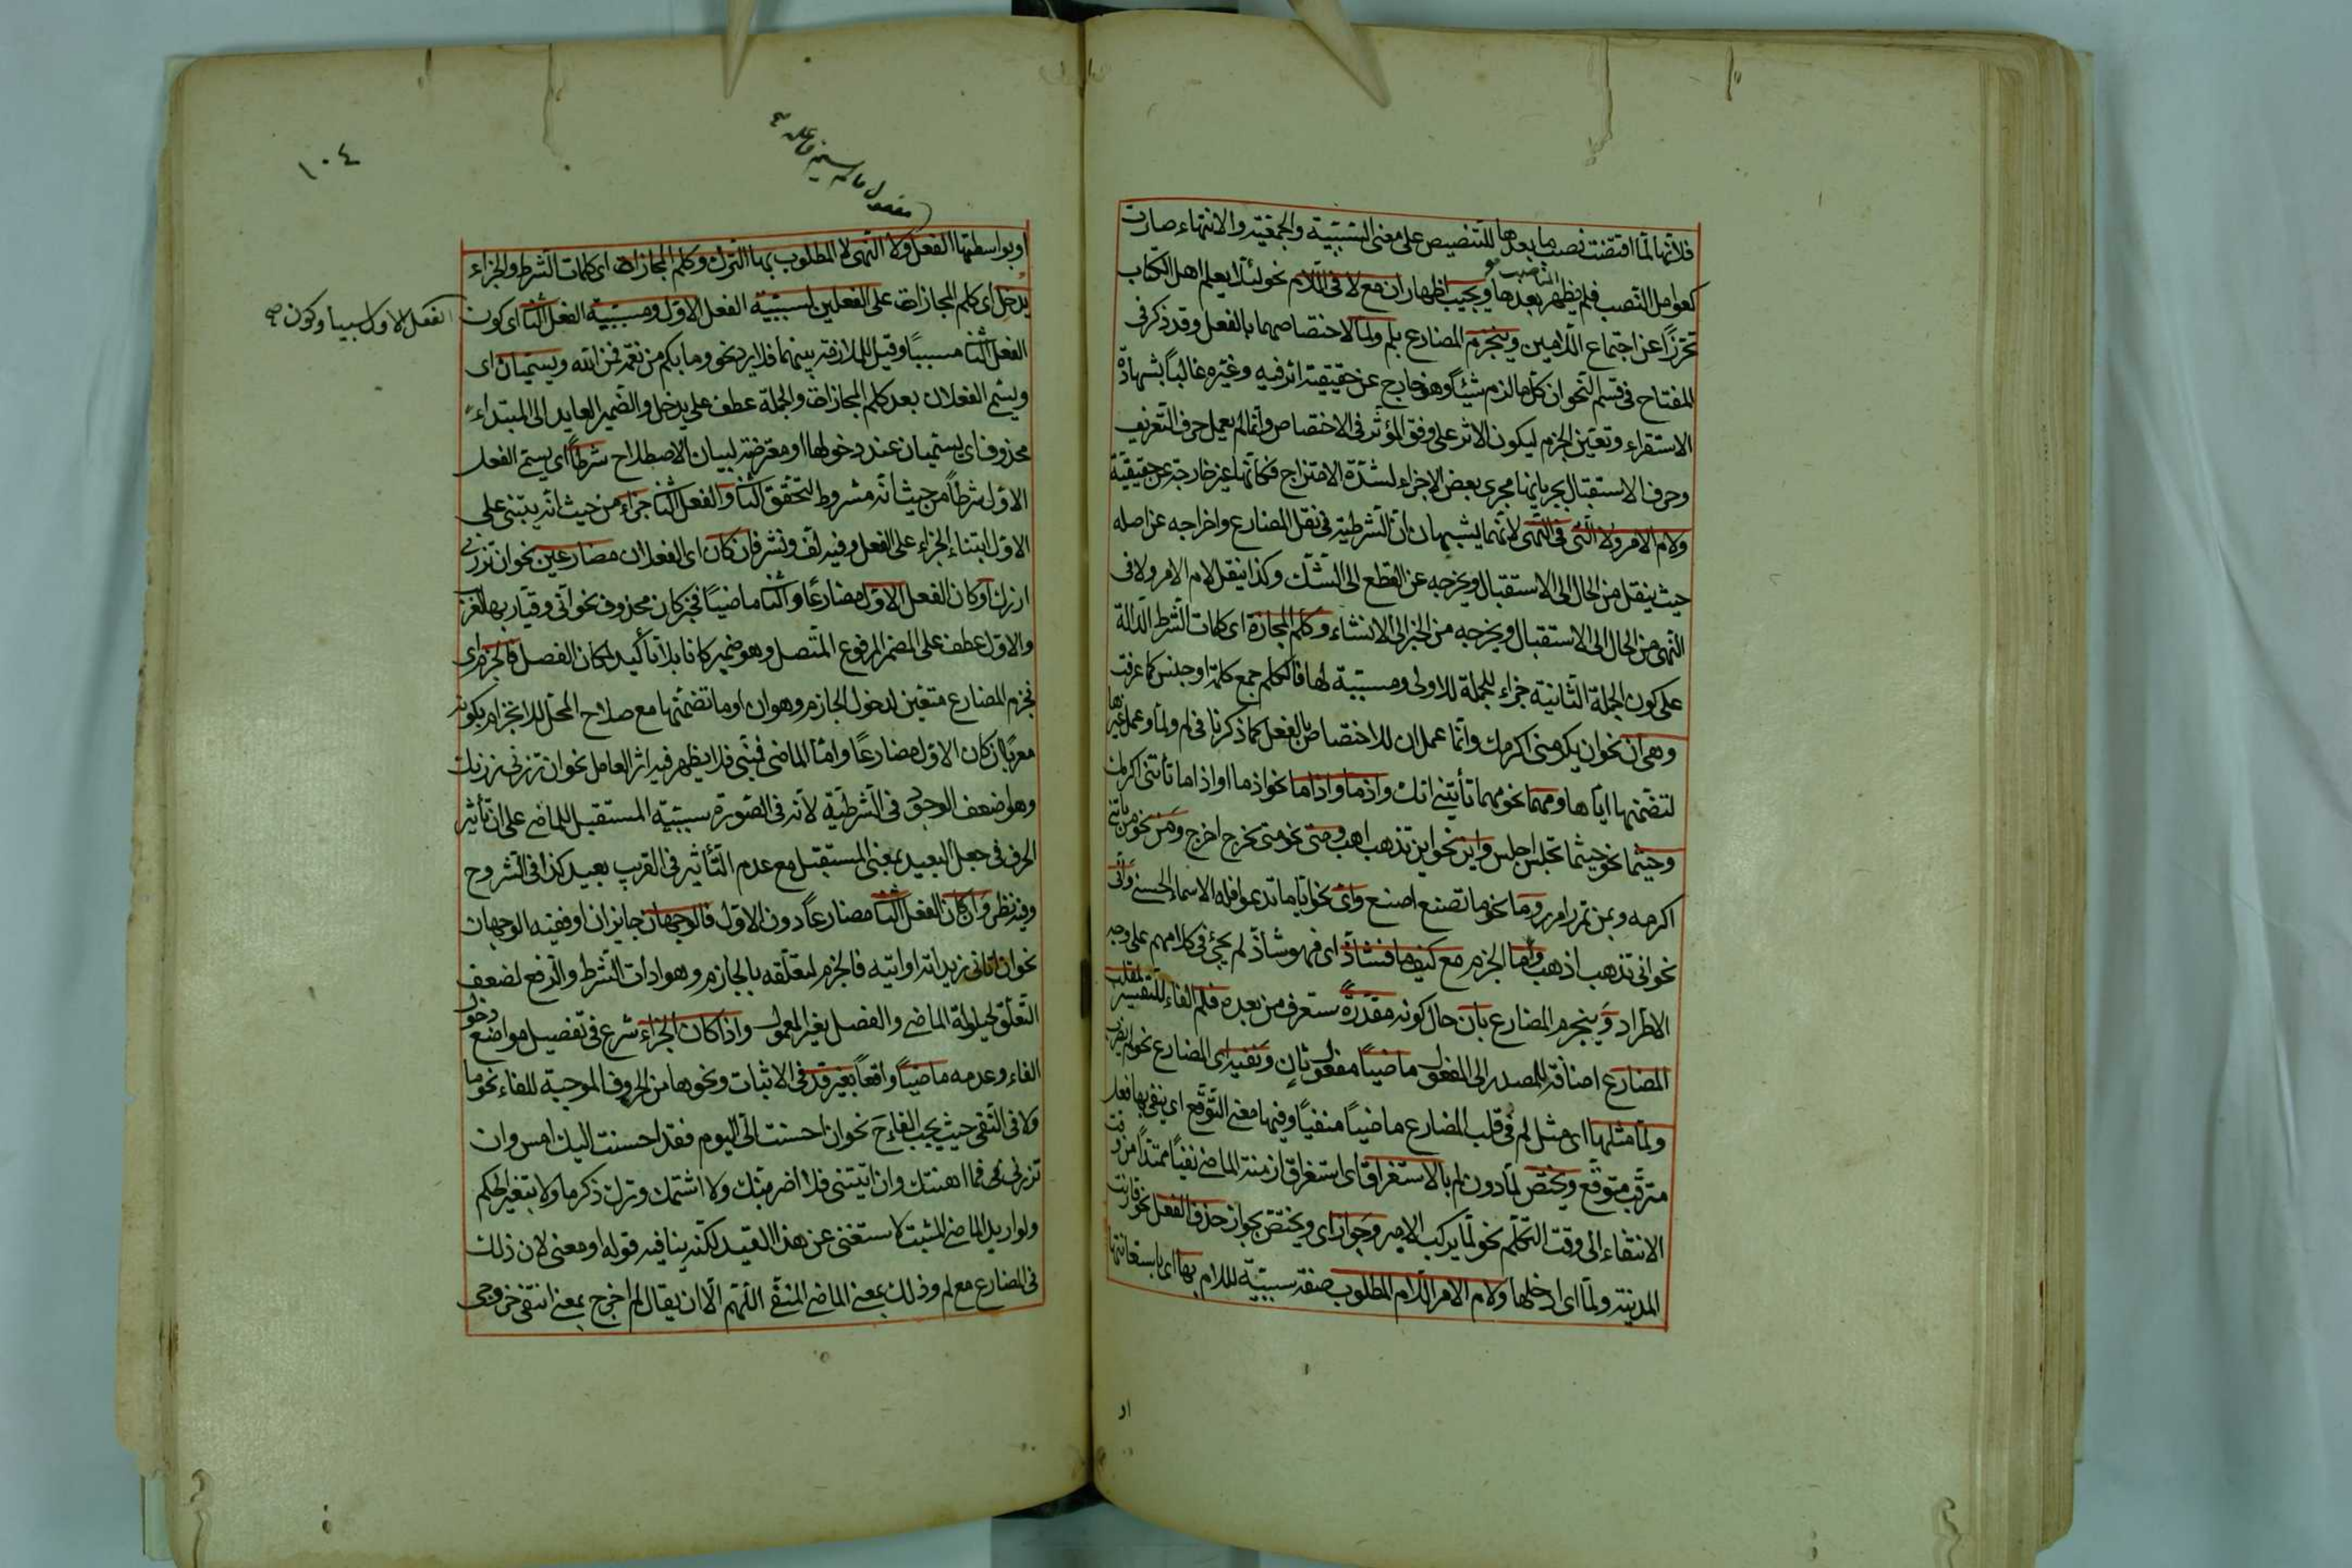 فلانها لما اقتضت نصب ما بعدها للتنصيص على معنى السببية والجمعية والانتهاء صارت
كعوامل النصب فلم يظهر الناصب بعدها ويجب اظهار ان مع لا فى اللام نحو لئلا يعلم اهل الكتاب
تحرزا عن اجتماع اللامين وينجزم المضارع بلم ولما لاختصاصهما بالفعل وقد ذكر فى
المفتاح فى قسم النحو ان كل ما لزم شيئا وهو خارج عن حقيقته اثر فيه وغيره غالبا بشهادة
الاستقراء وتعين الجزم ليكون الاثر على وفق المؤثر فى الاختصاص وانما لم يعمل حرف التعريف
وحرف الاستقبال لجريانها مجرى بعض الاجزاء لشدة الامتزاج فكانها غير خارجة عن حقيقته
ولام الامر ولا التى فى النهى لانهما يشبهان ان الشرطية فى نقل المضارع واخراجه عن اصله
حيث ينقل من الحال الى الاستقبال ويخرجه عن القطع الى الشك وكذا ينقل لام الامر ولا فى
النهى من الحال الى الاستقبال ويخرجه من الخبر الى الانشاء وكلم المجازاة اى كلمات الشرط الدالة
على كون الجملة الثانية جزاء للجملة الاولى ومسببة لها فالكلم جمع كلمة او جنس كما عرفت
وهى ان نحو ان يكرمنى اكرمك وانما عمل ان للاختصاص بالفعل كما ذكرنا فى لم ولما وعمل غيرها
لتضمنها اياها ومهما نحو مهما تأتينى اتك واذما واذاما نحو اذما او اذاما تأتنى اكرمك
وحيثما نحو حيثما تجلس اجلس واين نحو اين تذهب اذهب ومتى نحو متى تخرج اخرج ومن نحو من ياتنى
اكرمه وبمن تمرر امرر وما نحو ما تصنع اصنع واى نحو ايا ما تدعوا فله الاسماء الحسنى وانى
نحو انى تذهب اذهب واما الجزم مع كيفما فشاذ اى فهو شاذ لم يجئ فى كلامهم على وجه
الاطراد وينجزم المضارع بان حال كونه مقدرة ستعرف من بعده فلم الفاء للتفسير لقلب
المضارع اضافة للمصدر الى المفعول ماضيا مفعول ثان ونفيه اى المضارع نحو لم يضرب
ولما مثلها اى مثل لم فى قلب المضارع ماضيا منفيا وفيها معنى التوقع اى ينفى بها فعل
مترقب متوقع ويختص لما دون لم بالاستغراق اى استغراق ازمنة الماضى نفيا ممتدا من وقت
الانتفاء الى وقت التكلم نحو لما يركب الامير وجواز اى ويختص بجواز حذف الفعل نحو قاربت
المدينة ولما اى ادخلها ولام الامر اللام المطلوب صفة سببية للام بها اى باستعانتها
او
١٠٤
مفعول مالم يسم فاعله
او بواسطتها الفعل ولا النهى لا المطلوب بها الترك وكلم المجازاة اى كلمات الشرط والجزاء
يدخل اى كلم المجازات على الفعلين لسببية الفعل الاول ومسببية الفعل الثانى اى كون
الفعل الاول سببا وكون صح
الفعل الثانى مسببا وقيل للملازمة بينهما فلا يرد نحو وما بكم من نعمة فمن الله ويسميان اى
ويسمى الفعلان بعد كلم المجازات والجملة عطف على يدخل والضمير العايد الى المبتداء
محذوف اى يسميان عند دخولها او معترضة لبيان الاصطلاح شرطا اى يسمى الفعل
الاول شرطا من حيث انه مشروط لتحقق الثانى والفعل الثانى جزاء من حيث انه يبتنى على
الاول ابتناء الجزاء على الفعل وفيه لف ونشر فان كان اى الفعلان مضارعين نحو ان تزرنى
ازرك او كان الفعل الاول مضارعا والثانى ماضيا فخبر كان محذوف نحو انى وقيار بها لغريب
والاول عطف على المضمر المرفوع المتصل وهو ضمير كانا بلا تأكيد لمكان الفصل فالجزم اى
فجزم المضارع متعين لدخول الجازم وهو ان او ما تضمنها مع صلاح المحل للانجزام بكونه
معربا ان كان الاول مضارعا واما الماضى فمبنى فلا يظهر فيه اثر العامل نحو ان تزرنى زرتك
وهو اضعف الوجوه فى الشرطية لانه فى الصورة سببية المستقبل للماضى على ان تأثير
الحرف فى جعل البعيد بمعنى المستقبل مع عدم التأثير فى القريب بعيد كذا فى الشروح
وفيه نظر وان كان الفعل الثانى مضارعا دون الاول فالوجهان جايزان او ففيه الوجهان
نحو ان اتانى زيد اته او اتيه فالجزم لتعلقه بالجازم وهو ادات الشرط والرفع لضعف
التعلق لحيلولة الماضى والفصل بغير المعمول واذا كان الجزاء شرع فى تفصيل مواضع دخول
الفاء وعدمه ماضيا واقعا بغير قد فى الاثبات ونحوها من الحروف الموجبة للفاء نحو ما
ولا فى النفى حيث يجب الفاء ح نحو ان احسنت الى اليوم فقد احسنت اليك امس وان
تزرنى فما اهنتك وان اتيتنى فلا ضربتك ولا اشتمك وترك ذكر ما ولا بتغير الحكم
ولو اريد الماضى المثبت لاستغنى عن هذا القيد لكنه ينافيه قوله او معنى لان ذلك
فى المضارع مع لم وذلك بمعنى الماضى المنفى اللهم الا ان يقال لم اخرج بمعنى انتفى خروجى